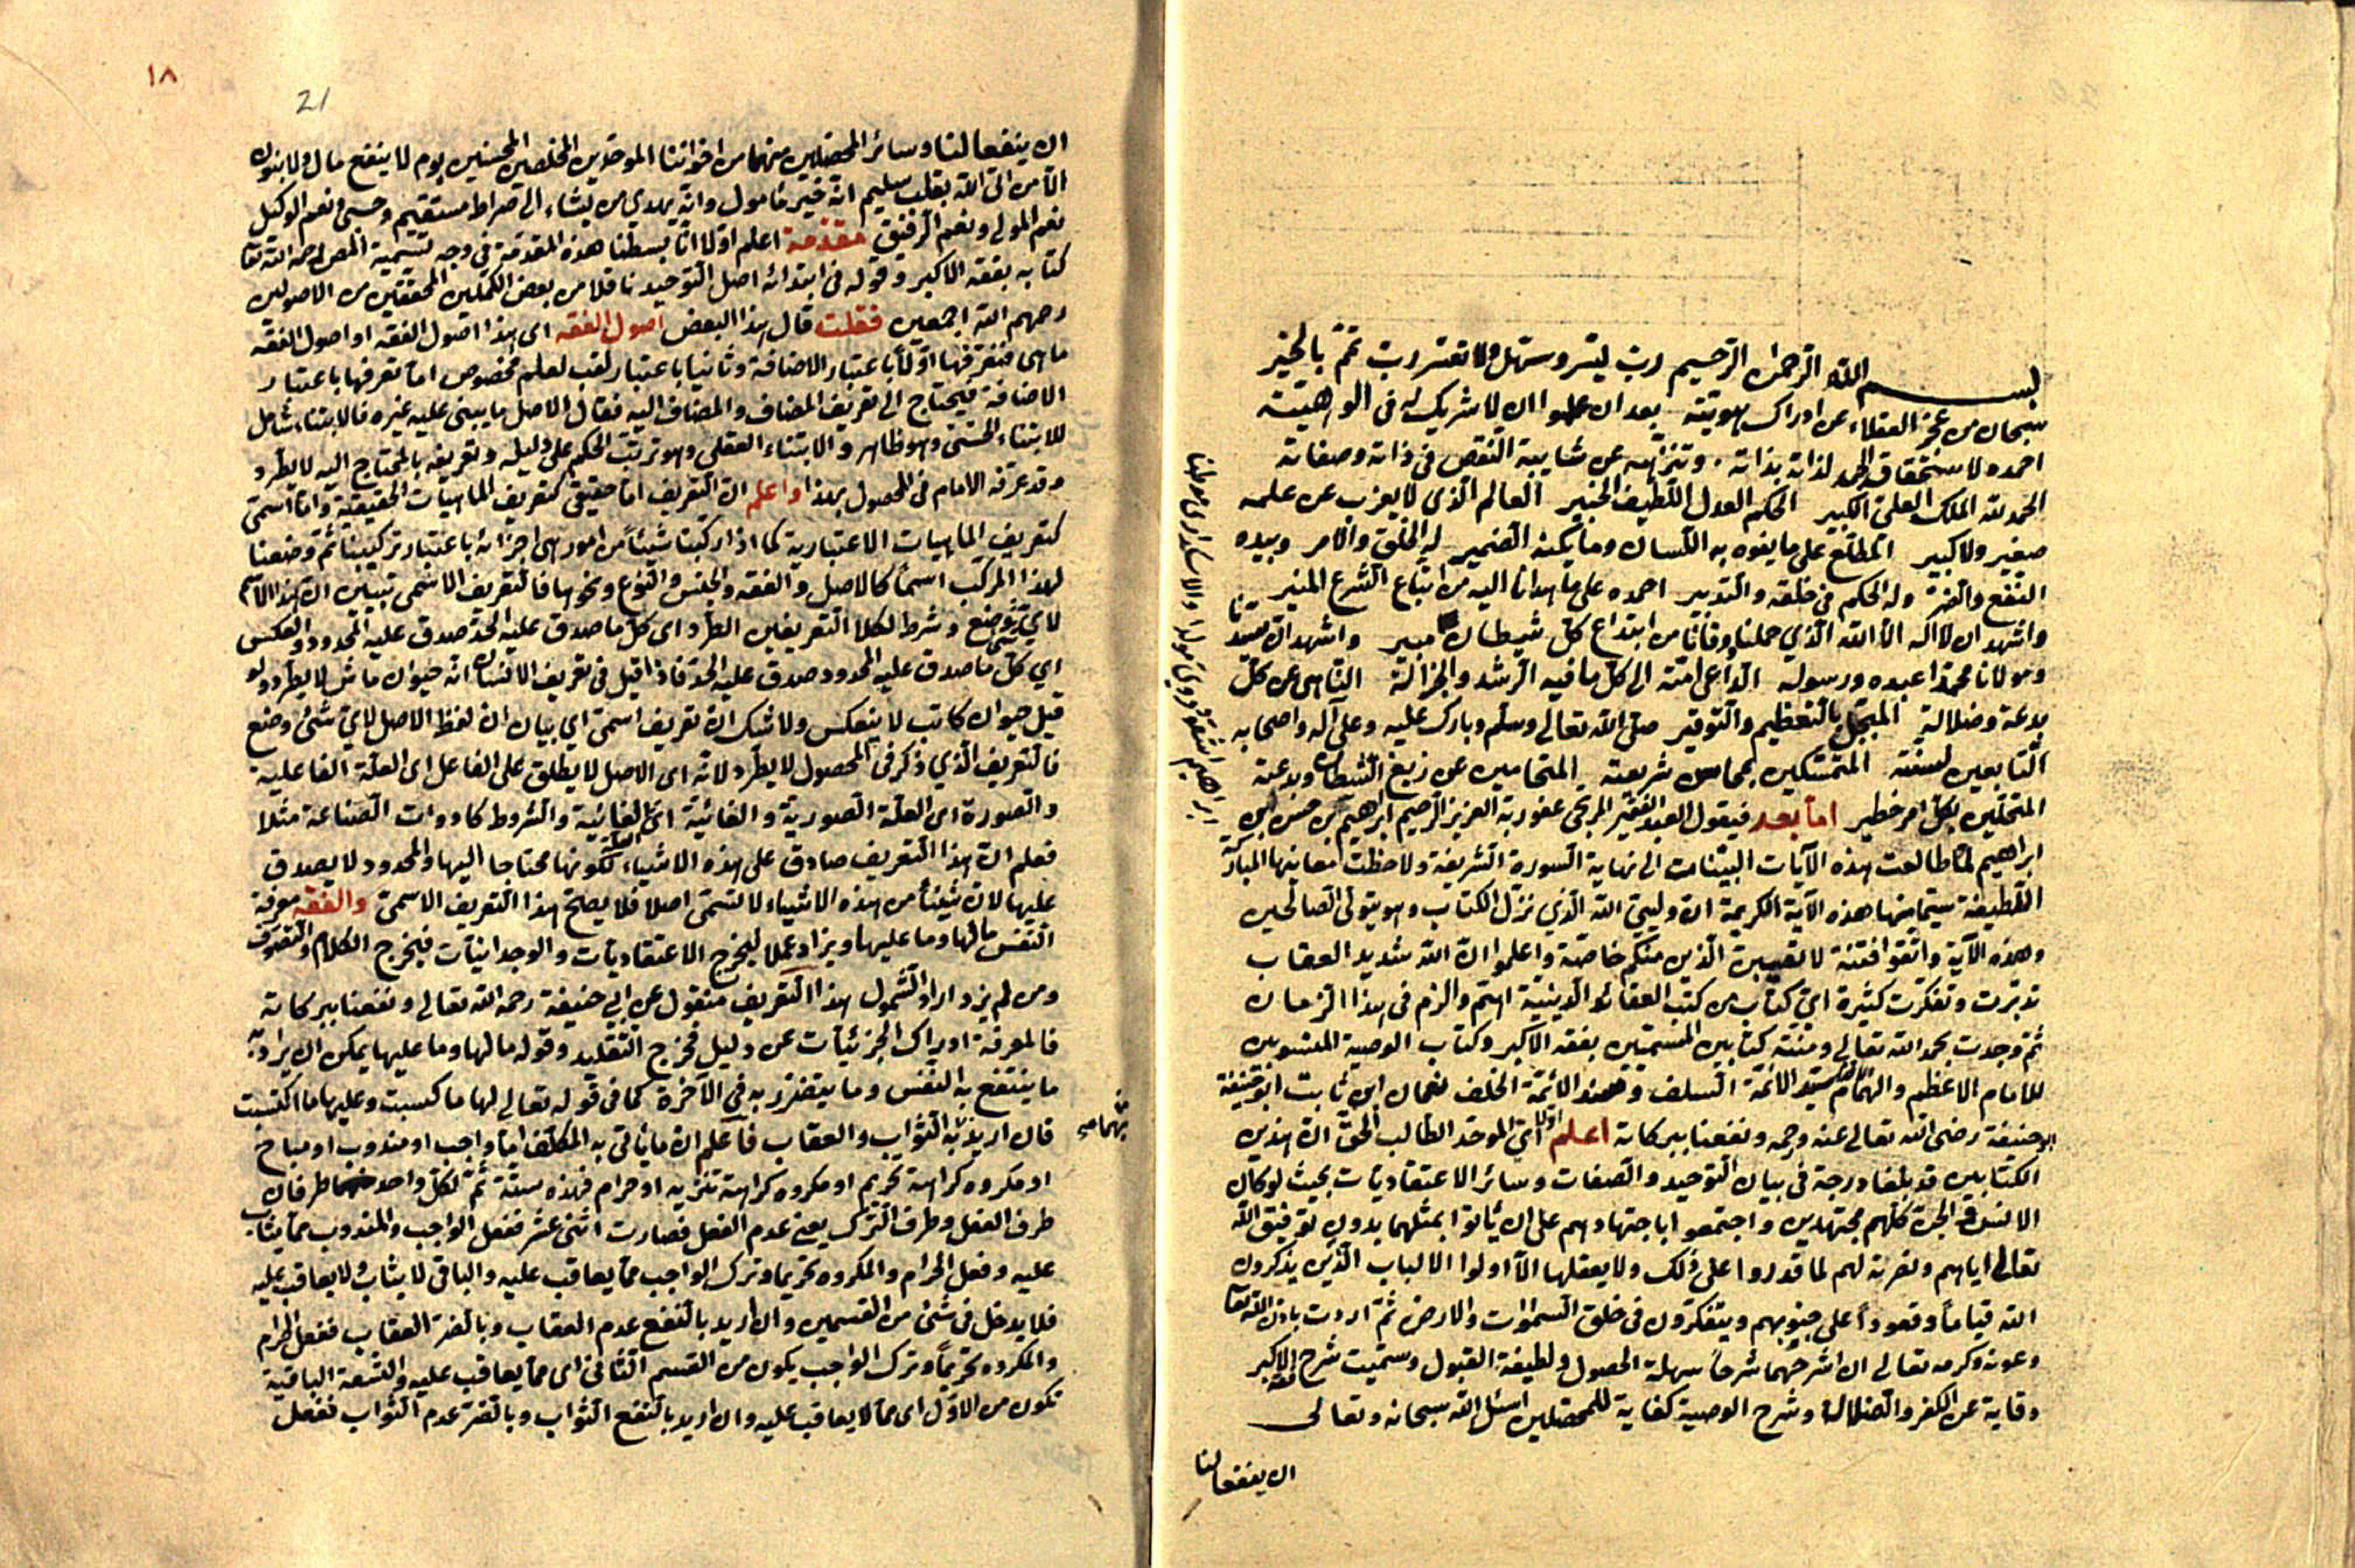 بسم الله الرحمن الرحيم رب يسر وسهل ولا تعسر رب تمم بالخير
سبحان من عجز العقلاء عن ادراك هويته بعد ان علموا ان لا شريك له في الوهيته
احمده لاستحقاق الحمد لذاته بذاته وتنزهه عن شايبة النقص في ذاته وصفاته
الحمد لله الملك العلي الكبير الحكم العدل اللطيف الخبير العالم الذي لا يعزب عن علمه
صغير ولا كبير المطلع على ما يفوه به اللسان وما يكنه الضمير له الخلق والامر وبيده
النفع والضر وله الحكم في خلقه والتدبير احمده على ما هدانا اليه من اتباع الشرع المنير
واشهد ان لا اله الا الله الذي حملنا وقانا من ابتداع كل شيطان مبير واشهد ان سيدنا
ومولانا محمدا عبده ورسوله الداعي امته الى كل ما فيه الرشد والجزالة الناهي عن كل
بدعة وضلالة المبجل بالتعظيم والتوقير صلى الله تعالى وسلم وبارك عليه وعلى آله واصحابه
التابعين لسنته المتمسكين بمحاسن شريعته المتحامين عن زيغ الشيطان وبدعته
المتحلين بكل امر خطير اما بعد فيقول العبد الفقير المرتجى عفو ربه العزيز الرحيم ابراهيم بن حسن بن
ابراهيم لما طالعت هذه الآيات البينات الى نهاية السورة الشريفة ولاحظت معانيها المباركة
اللطيفة سيما منها هذه الآية الكريمة ان وليي الله الذي نزل الكتاب وهو يتولى الصالحين
وهذه الآية واتقوا فتنة لا تصيبن الذين منكم خاصة واعلموا ان الله شديد العقاب
تدبرت وتفكرت كثيرة اي كتاب من كتب العقائد الدينية اهم والزم في هذا الزمان
ثم وجدت بحمد الله تعالى ومنته كتابين المسميين بفقه الاكبر وكتاب الوصية المنسوبين
للامام الاعظم والهمام سيد الائمة السلف وسند الائمة الخلف نعمان ابن ثابت ابو حنيفة
ابو حنيفة رضى الله تعالى عنه ورحمه ونفعنا ببركاته اعلم اولا اي الموحد الطالب الحق ان هذين
الكتابين قد بلغا درجة في بيان التوحيد والصفات وسائر الاعتقاديات بحيث لو كان
الانس والجن كلهم مجتهدين واجتمعوا باجتهادهم على ان ياتوا بمثلهما بدون توفيق الله
تعالى اياهم ونصرته لهم لما قدروا على ذلك ولا يعقلها الا اولوا الالباب الذين يذكرون
الله قياما وقعودا على جنوبهم ويتفكرون في خلق السموات والارض ثم اردت باذن الله تعا
وعونه وكرمه تعالى ان اشرحهما شرحا سهلة الحصول ولطيفة القبول وسميت شرح فقه الاكبر
وقاية عن الكفر والضلالة وشرح الوصية كفاية للمحصلين اسئل الله سبحانه وتعالى
ان ينفعا لنا
١٨
21
ان ينفعا لنا وسائر المحصلين منهما من اخواننا الموحدين المخلصين المحسنين يوم لا ينفع مال ولا بنون
الا من اتى الله بقلب سليم انه خير مأمول وانه يهدي من يشاء الى صراط مستقيم وحسبي ونعم الوكيل
نعم المولى ونعم الرفيق مقدمة اعلم اولا انا بسطنا هذه المقدمة في وجه تسمية المص رحمه الله تعا
كتابه بفقه الاكبر وقوله في ابتدائه اصل التوحيد ناقلا من بعض الكملين المحققين من الاصوليين
رحمهم الله اجمعين فقلت قال هذا البعض اصول الفقه اى هذا اصول الفقه او اصول الفقه
ما هي فنعرفها اولا باعتبار الاضافة وثانيا باعتبار لقب لعلم مخصوص اما تعرفها باعتبار
الاضافة فيحتاج الى تعريف المضاف والمضاف اليه فقال الاصل ما يبنى عليه غيره فالابتناء شامل
للابتناء الحسي وهو ظاهر والابتناء العقلي وهو ترتب الحكم على دليله وتعريفه بالمحتاج اليه لا يطرد
وقد عرفه الامام في المحصول بهذا واعلم ان التعريف اما حقيقي كتعريف الماهيات الحقيقية واما اسمي
كتعريف الماهيات الاعتبارية كما اذا ركبنا شيئا من امور هي اجزائه باعتبار تركيبنا ثم وضعنا
لهذا المركب اسما كالاصل والفقه والجنس والنوع ونحوها فالتعريف الاسمى تبيين ان هذا الاسم
لاي شئ وضع وشرط لكلا التعريفين الطرد اى كل ما صدق عليه الحد صدق عليه المحدود والعكس
اي كل ما صدق عليه المحدود صدق عليه الحد فاذا قيل في تعريف الانسان انه حيوان ماش لا يطرد ولو
قيل حيوان كاتب لا ينعكس ولا شك ان تعريف اسمي اي بيان ان لفظ الاصل لاي شئ وضع
فالتعريف الذي ذكر في المحصول لا يطرد لانه اى الاصل لا يطلق على الفاعل اى العلة الفاعلية
والصورة اى العلة الصورية والغائية اى الغائية والشروط كادوات الصناعة مثلا
فعلم ان هذا التعريف صادق على هذه الاشياء لكونها محتاجا اليها والمحدود لا يصدق
عليها لان شيئا من هذه الاشياء لا تسمى اصلا فلا يصلح هذا التعريف الاسمي والفقه معرفة
النفس ما لها وما عليها ويزاد عملا ليخرج الاعتقاديات والوجدانيات فيخرج الكلام والتصوف
ومن لم يزد اراد الشمول هذا التعريف منقول عن ابي حنيفة رحمه الله تعالى ونفعنا ببركاته
فالمعرفة ادراك الجزئيات عن دليل فخرج التقليد وقوله ما لها وما عليها يمكن ان يراد به
ما ينتفع به النفس وما يتضرر به في الآخرة كما في قوله تعالى لها ما كسبت وعليها ما اكتسبت
فان اريد به الثواب والعقاب فاعلم ان ما يأتي به المكلف اما واجب او مندوب او مباح
او مكروه كراهة تحريم او مكروه كراهة تنزيه او حرام فهذه ستة ثم لكل واحد طرفان
طرف الفعل وطرف الترك يعني عدم الفعل فصارت اثنى عشر ففعل الواجب والمندوب مما يثاب
عليه وفعل الحرام والمكروه تحريما وترك الواجب مما يعاقب عليه والباقي لا يثاب ولا يعاقب عليه
فلا يدخل في شئ من القسمين وان اريد بالنفع عدم العقاب وبالضر العقاب ففعل الحرام
والمكروه تحريما وترك الواجب يكون من القسم الثاني اى مما يعاقب عليه والتسعة الباقية
تكون من الاول اى مما لا يعاقب عليه وان اريد بالنفع الثواب وبالضر عدم الثواب ففعل